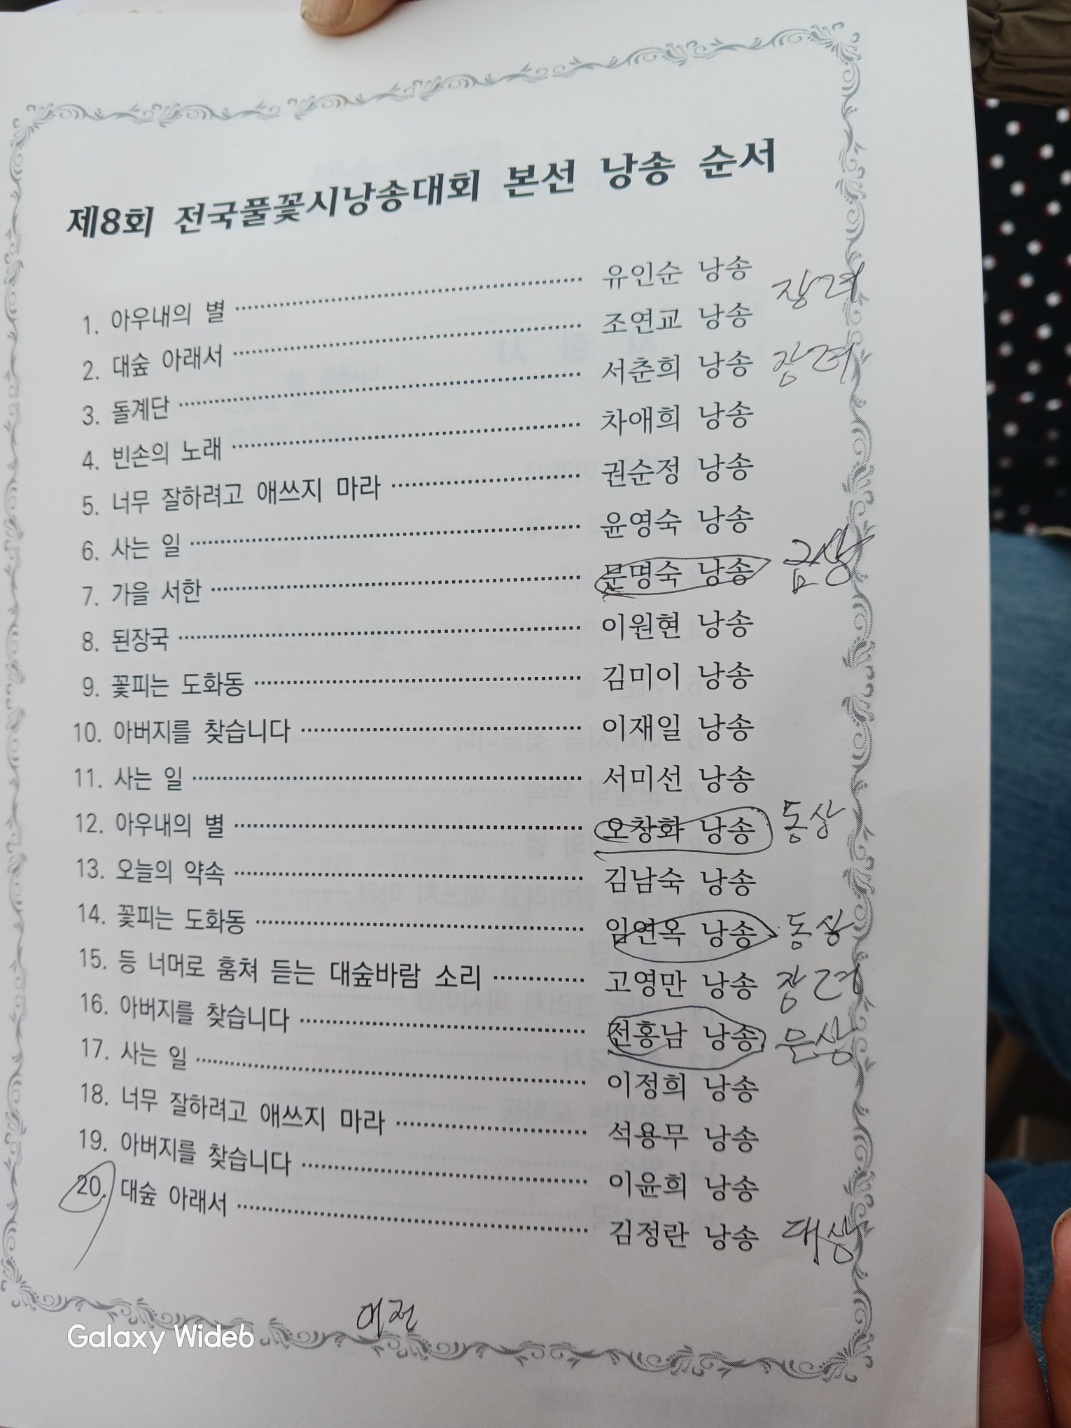 제8회 전국풀꽃시낭송대회 본선 낭송 순서
1. 아우내의 별 ⋯⋯⋯⋯ 유인순 낭송 장려
2. 대숲 아래서 ⋯⋯⋯⋯ 조연교 낭송
3. 돌계단 ⋯⋯⋯⋯ 서춘희 낭송 장려
4. 빈손의 노래 ⋯⋯⋯⋯ 차애희 낭송
5. 너무 잘하려고 애쓰지 마라 ⋯⋯⋯⋯ 권순정 낭송
6. 사는 일 ⋯⋯⋯⋯ 윤영숙 낭송
7. 가을 서한 ⋯⋯⋯⋯ 문명숙 낭송 금상
8. 된장국 ⋯⋯⋯⋯ 이원현 낭송
9. 꽃피는 도화동 ⋯⋯⋯⋯ 김미이 낭송
10. 아버지를 찾습니다 ⋯⋯⋯⋯ 이재일 낭송
11. 사는 일 ⋯⋯⋯⋯ 서미선 낭송
12. 아우내의 별 ⋯⋯⋯⋯ 오창화 낭송 동상
13. 오늘의 약속 ⋯⋯⋯⋯ 김남숙 낭송
14. 꽃피는 도화동 ⋯⋯⋯⋯ 임연옥 낭송 동상
15. 등 너머로 훔쳐 듣는 대숲바람 소리 ⋯⋯⋯⋯ 고영만 낭송 장려
16. 아버지를 찾습니다 ⋯⋯⋯⋯ 전홍남 낭송 은상
17. 사는 일 ⋯⋯⋯⋯ 이정희 낭송
18. 너무 잘하려고 애쓰지 마라 ⋯⋯⋯⋯ 석용무 낭송
19. 아버지를 찾습니다 ⋯⋯⋯⋯ 이윤희 낭송
20. 대숲 아래서 ⋯⋯⋯⋯ 김정란 낭송 대상
Galaxy Wide6